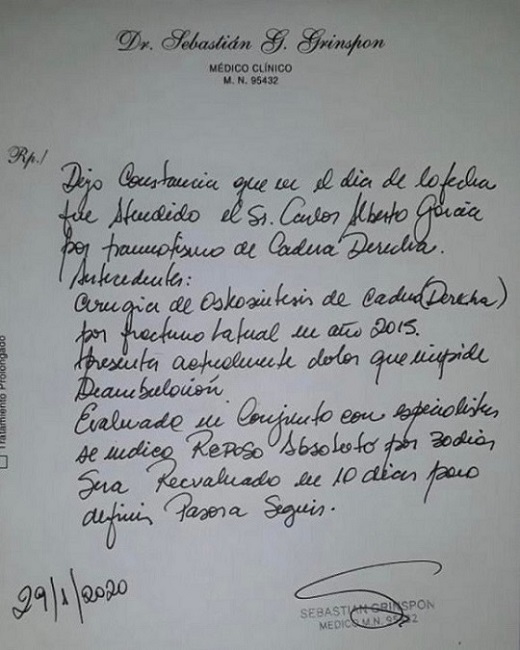 Dr. Sebastián G. Grinspon
MÉDICO CLÍNICO
M. N. 95432
Rp./
Dejo Constancia que en el dia de la fecha
fue Atendido el Sr. Carlos Alberto García
por traumatismo de Cadera Derecha.
Antecedentes:
Cirugia de Osteosintesis de Cadera (Derecha)
por fractura lateral en año 2015.
Presenta actualmente dolor que impide
Deambulación.
Evaluado en Conjunto con especialistas
se indica Reposo Absoluto por 30 dias
Sera Reevaluado en 10 dias para
definir Pasos a Seguir.
Tratamiento Prolongado
29/1/2020
SEBASTIAN GRINSPON
MEDICO M.N. 95432